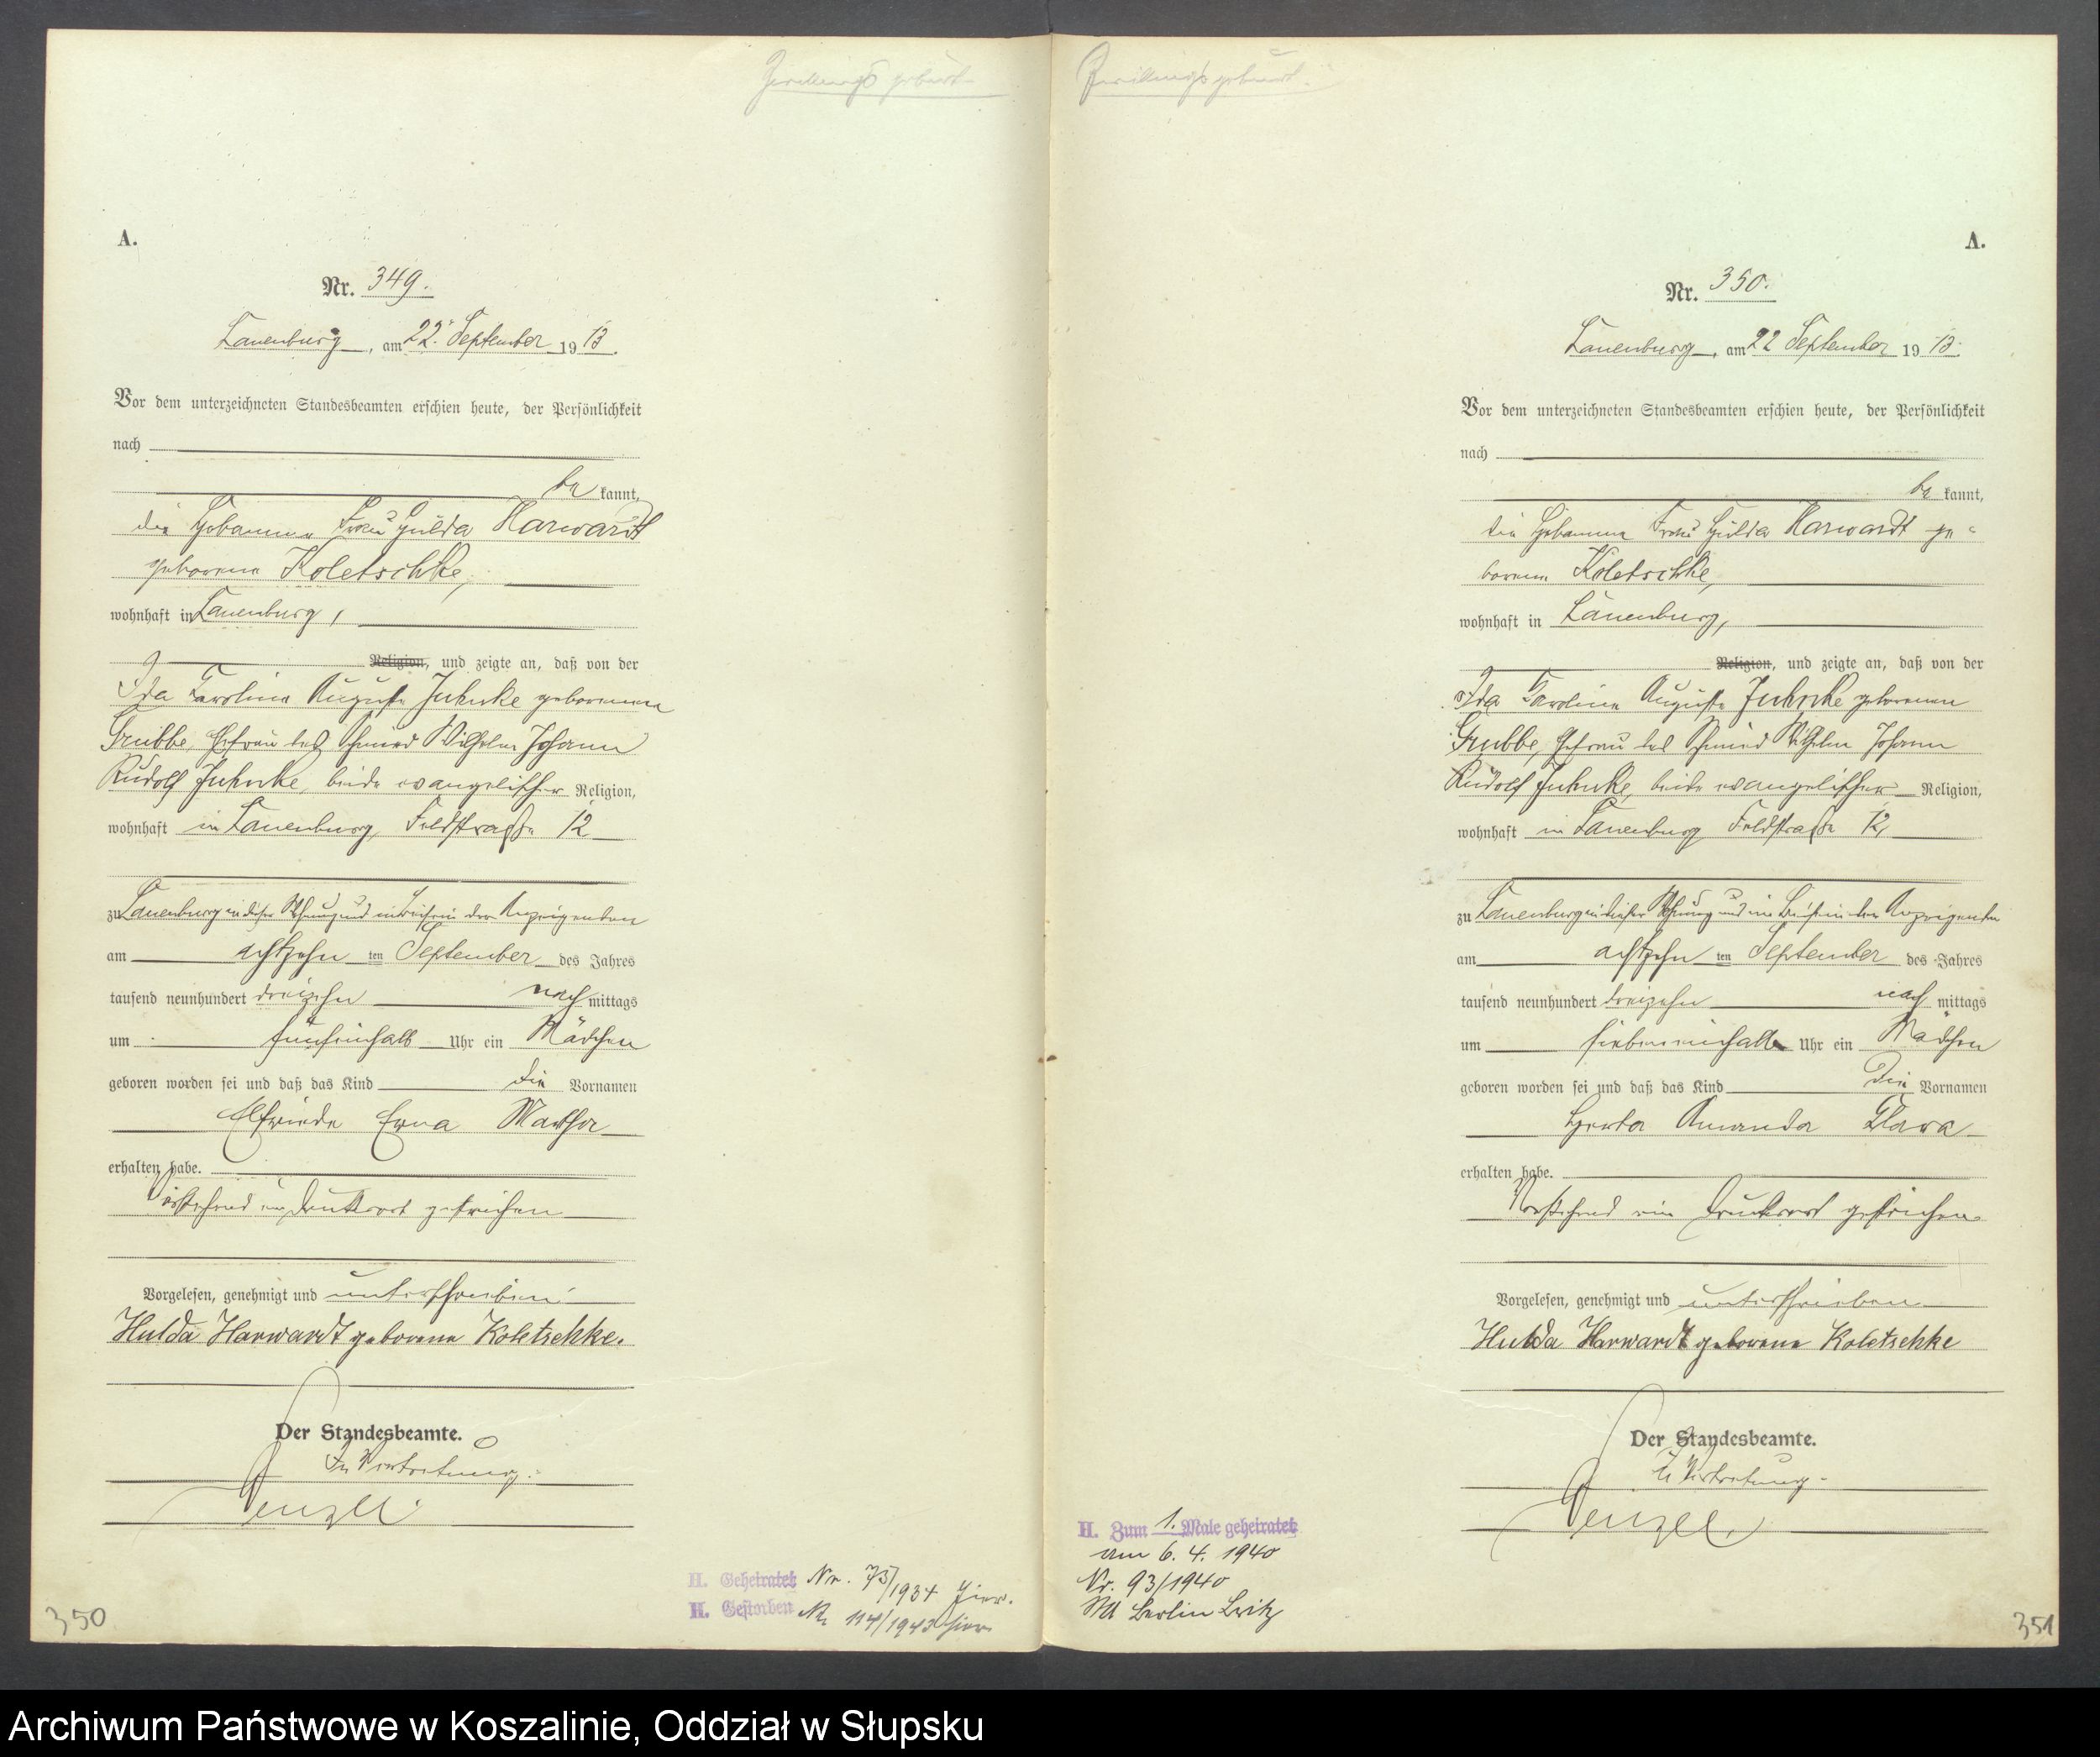 Zwillingsgeburt
A.
Nr. 349.
Lauenburg, am 22. September 1913.
Vor dem unterzeichneten Standesbeamten erschien heute, der Persönlichkeit
nach
be kannt,
die Hebamme Frau Hulda Harwardt
geborene Koletschke,
wohnhaft in Lauenburg,
Religion, und zeigte an, daß von der
Ida Karoline Auguste Juhnke geborenen
Grubbe, Ehefrau des Schmied Wilhelm Johann
Rudolf Juhnke, beide evangelischer Religion,
wohnhaft in Lauenburg, Feldstraße 12
zu Lauenburg in dieser Wohnung und im Beisein der Anzeigenden
am achtzehn ten September des Jahres
tausend neunhundert dreizehn nach mittags
um fünfeinhalb Uhr ein Mädchen
geboren worden sei und daß das Kind die Vornamen
Elfriede Erna Martha
erhalten habe.
Vorstehend ein Druckwort gestrichen
Vorgelesen, genehmigt und unterschrieben
Hulda Harwardt geborene Koletschke.
Der Standesbeamte.
In Vertretung.
Wenzel
H. Geheiratet Nr. 73/1934 hier.
H. Gestorben Nr. 114/1943 hier
350
Zwillingsgeburt.
A.
Nr. 350.
Lauenburg, am 22 September 1913.
Vor dem unterzeichneten Standesbeamten erschien heute, der Persönlichkeit
nach
be kannt,
die Hebamme Frau Hulda Harwardt ge-
borene Koletschke,
wohnhaft in Lauenburg,
Religion, und zeigte an, daß von der
Ida Karoline Auguste Juhnke geborenen
Grubbe, Ehefrau des Schmied Wilhelm Johann
Rudolf Juhnke, beide evangelischer Religion,
wohnhaft in Lauenburg Feldstraße 12,
zu Lauenburg in dieser Wohnung und im Beisein der Anzeigenden
am achtzehn ten September des Jahres
tausend neunhundert dreizehn nach mittags
um siebeneinhalb Uhr ein Mädchen
geboren worden sei und daß das Kind die Vornamen
Herta Amanda Klara
erhalten habe.
Vorstehend ein Druckwort gestrichen.
Vorgelesen, genehmigt und unterschrieben
Hulda Harwardt geborene Koletschke
Der Standesbeamte.
In Vertretung.
Wenzel
H. Zum 1. Male geheiratet
am 6. 4. 1940
Nr. 93/1940
Berlin Britz
351
Archiwum Państwowe w Koszalinie, Oddział w Słupsku